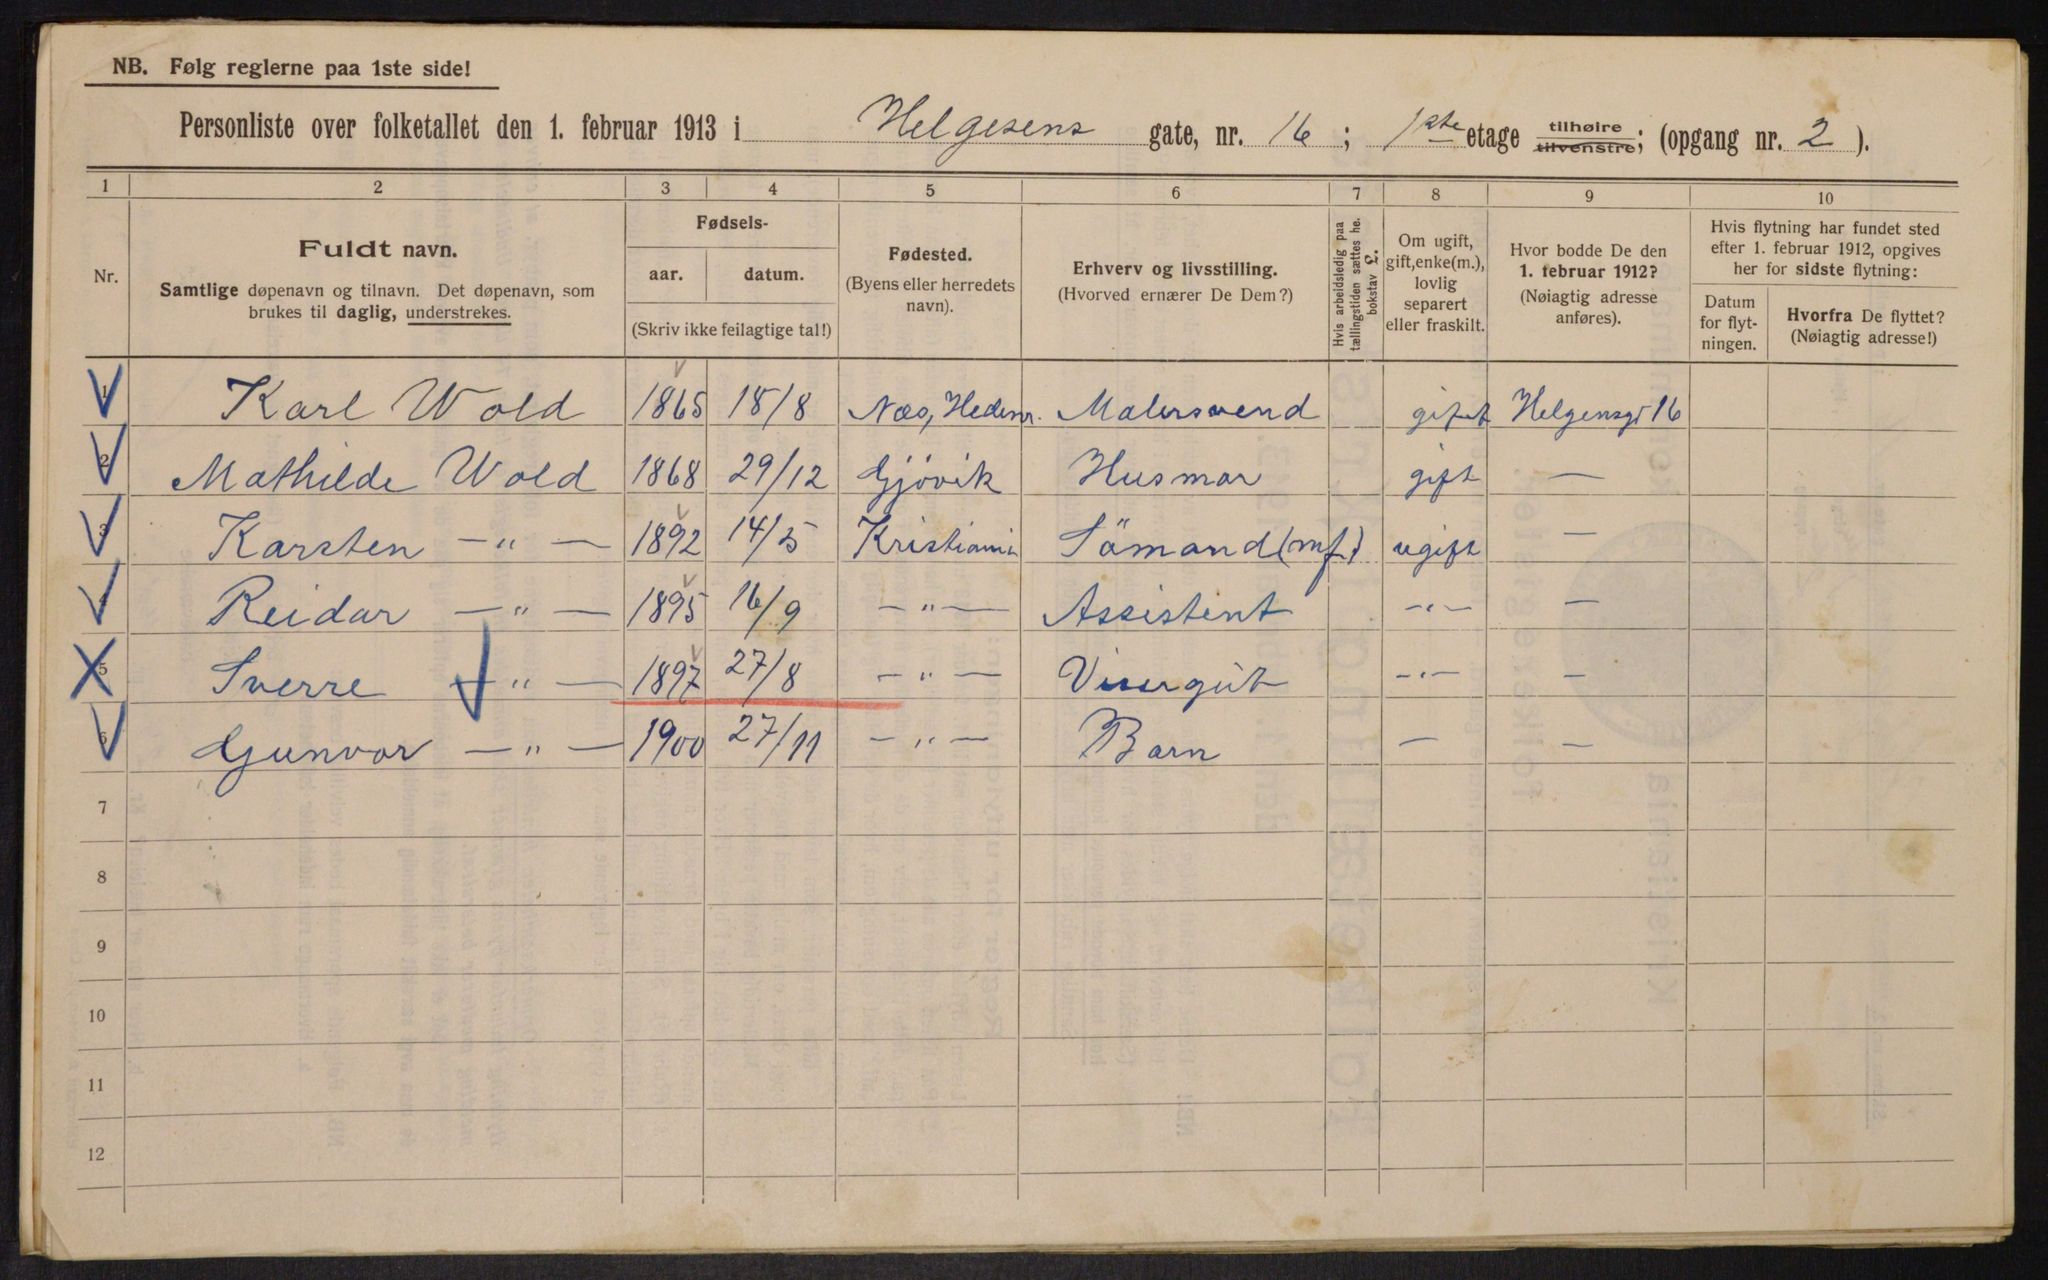 NB. Følg reglerne paa 1ste side!
Personliste over folketallet den 1. februar 1913 i Helgesens gate, nr. 16 ; 1ste etage tilhøire tilvenstre; (opgang nr. 2 ).
1 2 3 4 5 6 7 8 9 10
Nr.
Fuldt navn.
Samtlige døpenavn og tilnavn. Det døpenavn, som
brukes til daglig, understrekes.
Fødsels-
aar. datum.
(Skriv ikke feilagtige tal!)
Fødested.
(Byens eller herredets
navn).
Erhverv og livsstilling.
(Hvorved ernærer De Dem?)
Hvis arbeidsledig paa
tællingstiden sættes he.
bokstav £.
Om ugift,
gift, enke(m.),
lovlig
separert
eller fraskilt.
Hvor bodde De den
1. februar 1912?
(Nøiagtig adresse
anføres).
Hvis flytning har fundet sted
efter 1. februar 1912, opgives
her for sidste flytning:
Datum
for flyt-
ningen.
Hvorfra De flyttet?
(Nøiagtig adresse!)
1 Karl Wold 1865 18/8 Næs, Hedem. Malersvend gift Helgensgt 16
2 Mathilde Wold 1868 29/12 Gjøvik Husmor gift —
3 Karsten — " — 1892 14/5 Kristiania Sömand (mf.) ugift —
4 Reidar — " — 1895 16/9 — " — Assistent — " — —
5 Sverre — " — 1897 27/8 — " — Visergut — " — —
6 Gunvor — " — 1900 27/11 — " — Barn — —
7
8
9
10
11
12